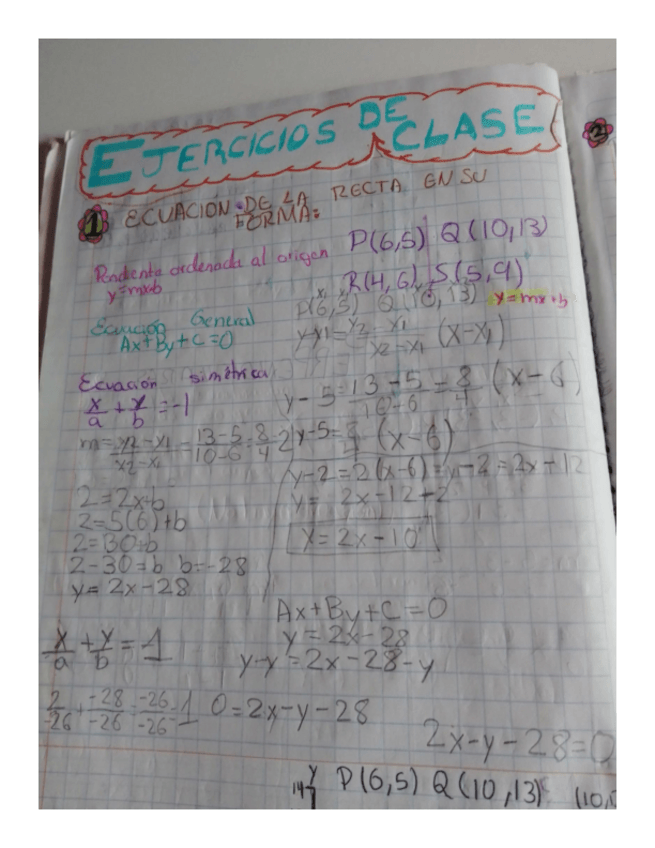 EJERCICIOS DE CLASE
2
1 ECUACIÓN DE LA RECTA EN SU FORMA:
Pendiente ordenada al origen
y=mx+b
P(6,5) Q(10,13)
R(4,6) S(5,9)
Ecuación General
Ax+By+C=0
P(6,5) Q(10,13) y=mx+b
x₁ y₁
y-y1=
x2-x1 (x-x₁)
Ecuación simétrica
x/a + y/b = -1
y-5=13-5/10-6=8/4 (x-6)
m=y2-y1/x2-x1=13-5/10-6=8/4 2
y-5= (x-6)
y-2=2(x-6)= y-2=2x+12
y= 2x-12+2
X=2x-10
2=2x+b
2=5(6)+b
2=30+b
2-30=b b=-28
y=2x-28
Ax+By+C=0
y=2x-28
y-y=2x-28-y
0=2x-y-28
2x-y-28=0
x/a + y/b = 1
2/-26 + -28/-26 = -26/-26 = 1
14 y P(6,5) Q(10,13) (10,